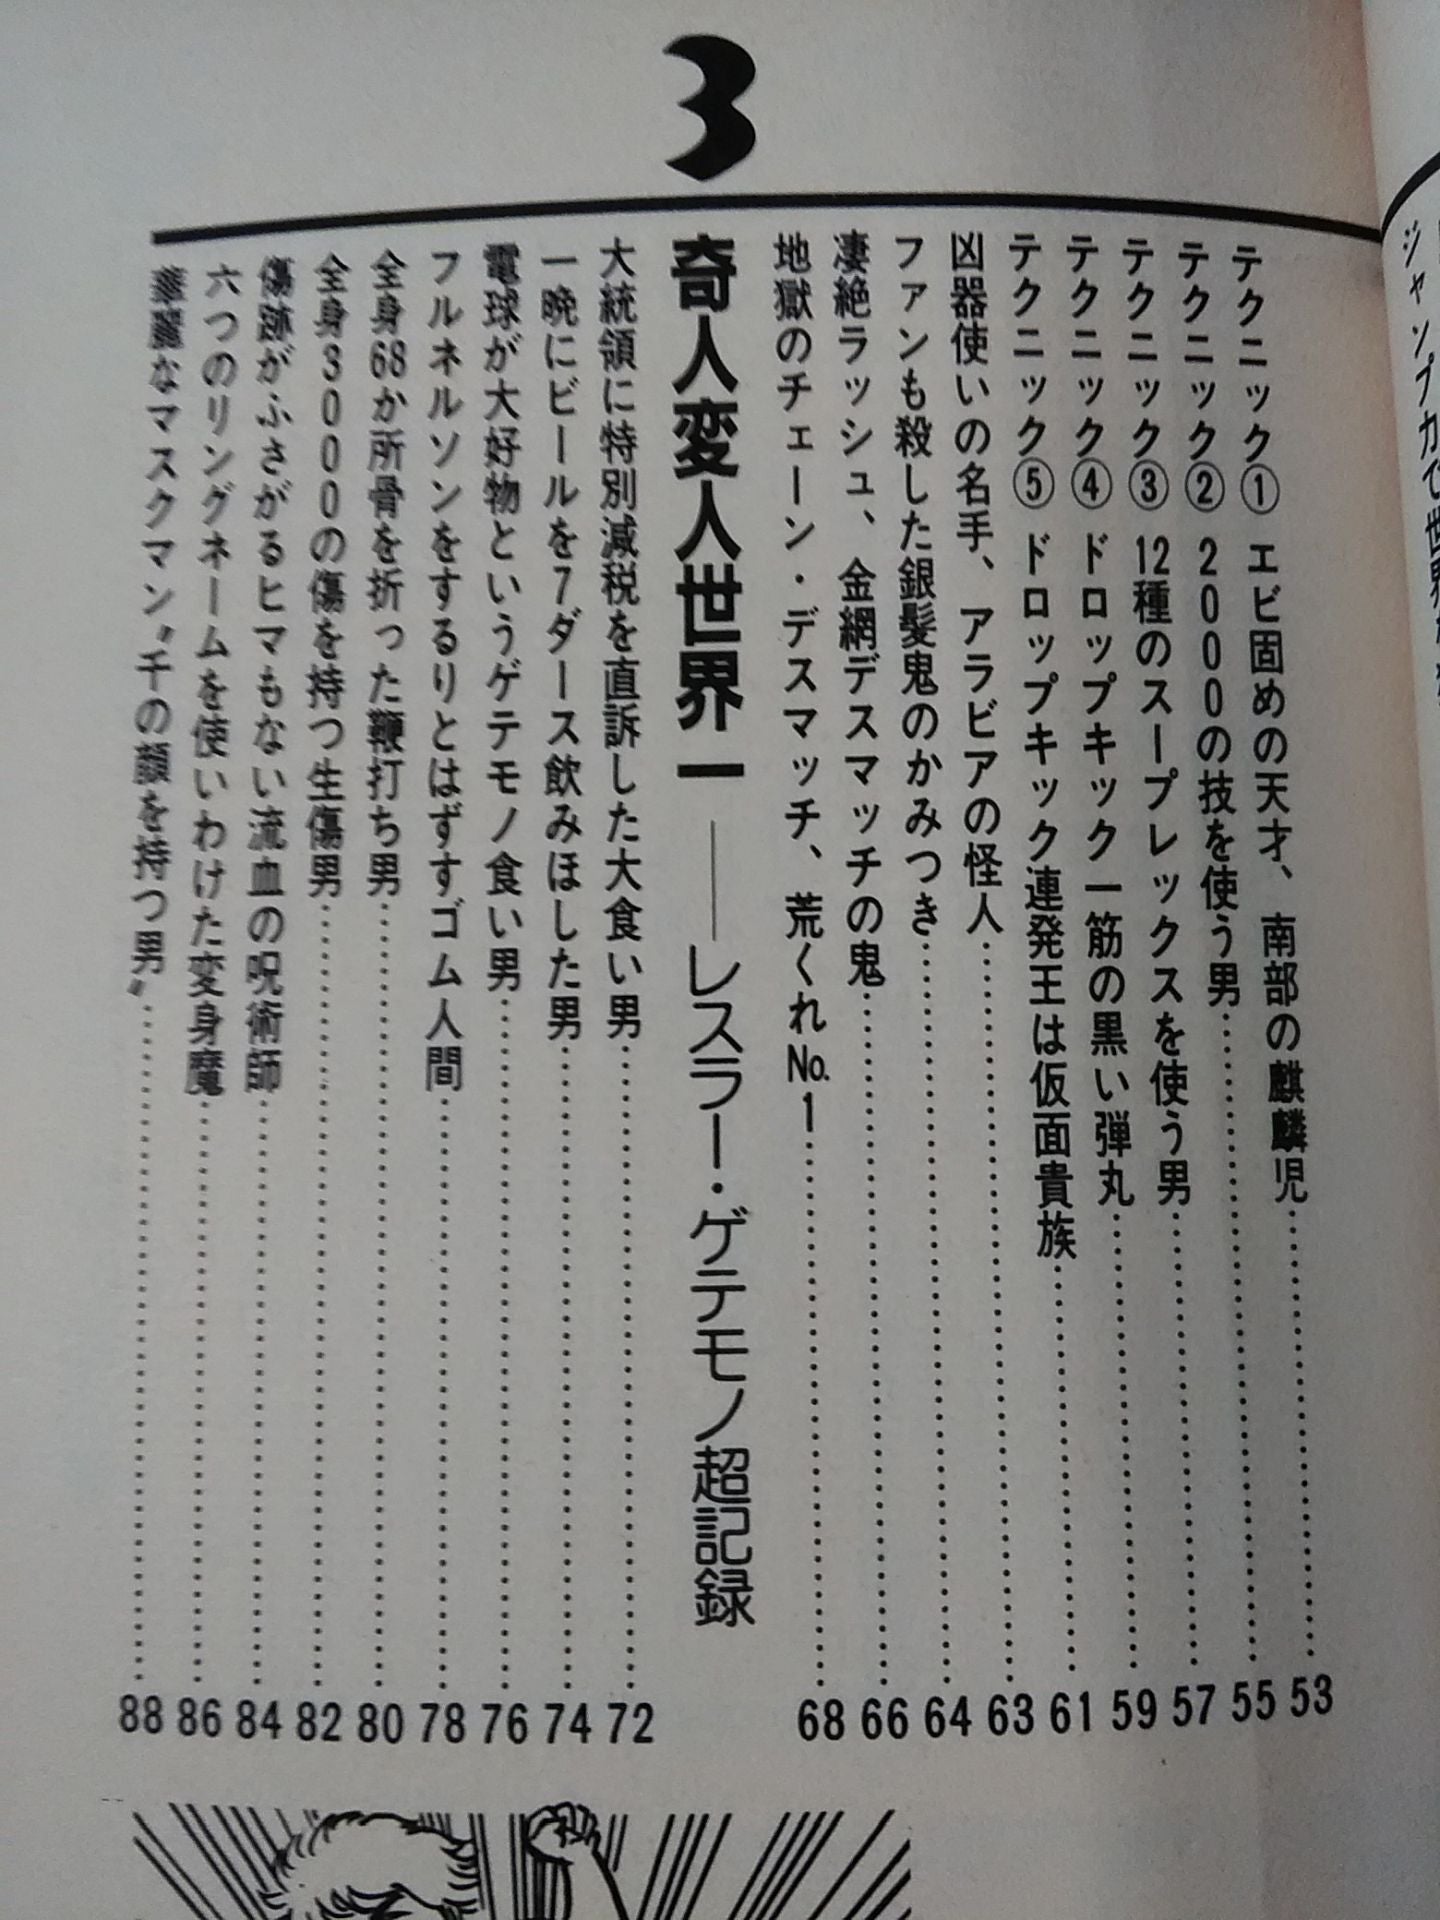 ジャンプ力で世界
テクニック① エビ固めの天才、南部の麒麟児……53
テクニック② 2000の技を使う男……55
テクニック③ 12種のスープレックスを使う男……57
テクニック④ ドロップキック一筋の黒い弾丸……59
テクニック⑤ ドロップキック連発王は仮面貴族……61
凶器使いの名手、アラビアの怪人……63
ファンも殺した銀髪鬼のかみつき……64
凄絶ラッシュ、金網デスマッチの鬼……66
地獄のチェーン・デスマッチ、荒くれNo.1……68
3
奇人変人世界一――レスラー・ゲテモノ超記録
大統領に特別減税を直訴した大食い男……72
一晩にビールを7ダース飲みほした男……74
電球が大好物というゲテモノ食い男……76
フルネルソンをするりとはずすゴム人間……78
全身68か所骨を折った鞭打ち男……80
全身3000の傷を持つ生傷男……82
傷跡がふさがるヒマもない流血の呪術師……84
六つのリングネームを使いわけた変身魔……86
華麗なマスクマン〝千の顔を持つ男〟……88